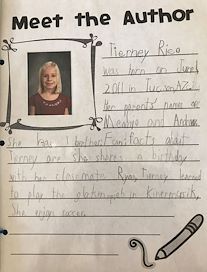 Meet the Author
Tierney Rico
was born on June
2011 in Tucson, AZ.
Her parents' names are
and Andrew.
She has 1 brother. Fun facts about
Tierney are she shares a birthday
with her classmate Ryan, Tierney learned
to play the in
She enjoys soccer.